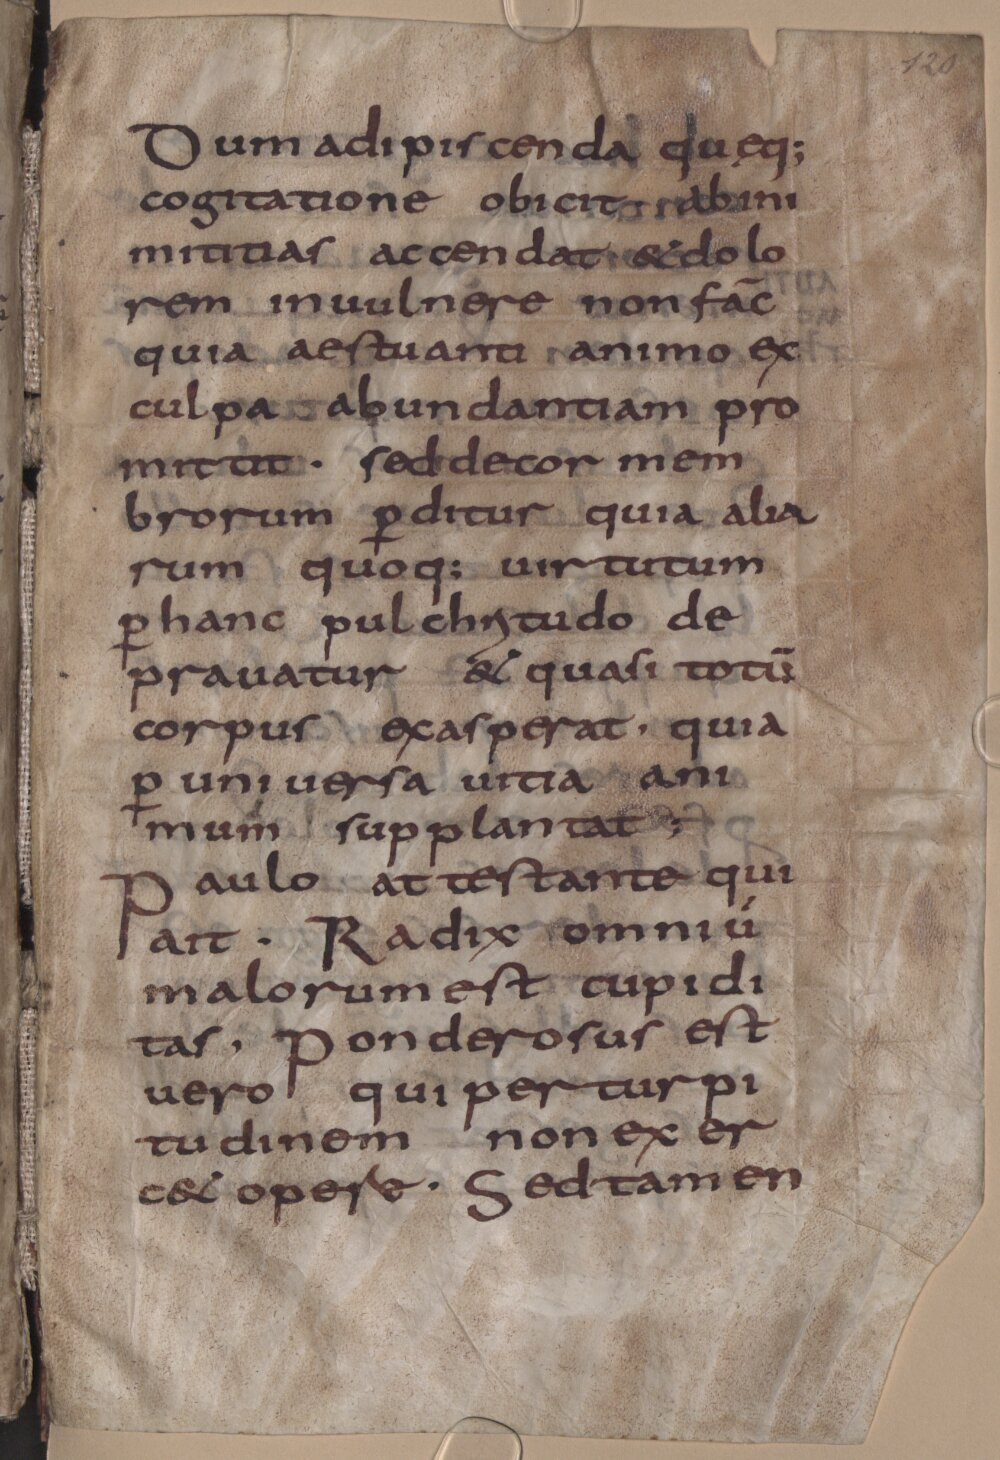 120
Dum adipiscenda quęq;
cogitatione obicit abini
mititias accendat &dolo
rem inuulnere non fac̄
quia aestuanti animo ex
culpa abundantiam pro
mittit. sed decor mem
brorum ꝑditur quia alia
rum quoq; uirtutum
ꝑ hanc pulchritudo de
prauatur & quasi totū
corpus exasperat, quia
ꝑ uniuersa uitia ani
mum supplantat;
Paulo attestante qui
ait. Radix omniū
malorum est cupidi
tas, Ponderosus est
uero qui per turpi
tudinem non exer
c& opere. Sed tamen